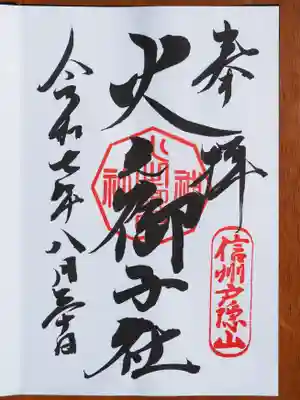 奉拝
信州戸隠山
火之御子社
令和七年八月三十日